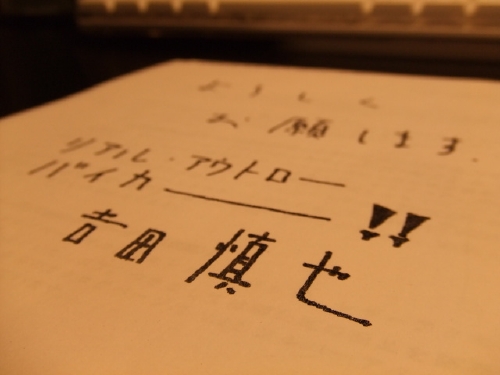 よろしく
お願します.
リアル・アウトロー
バイカー!!
吉田慎ぜ